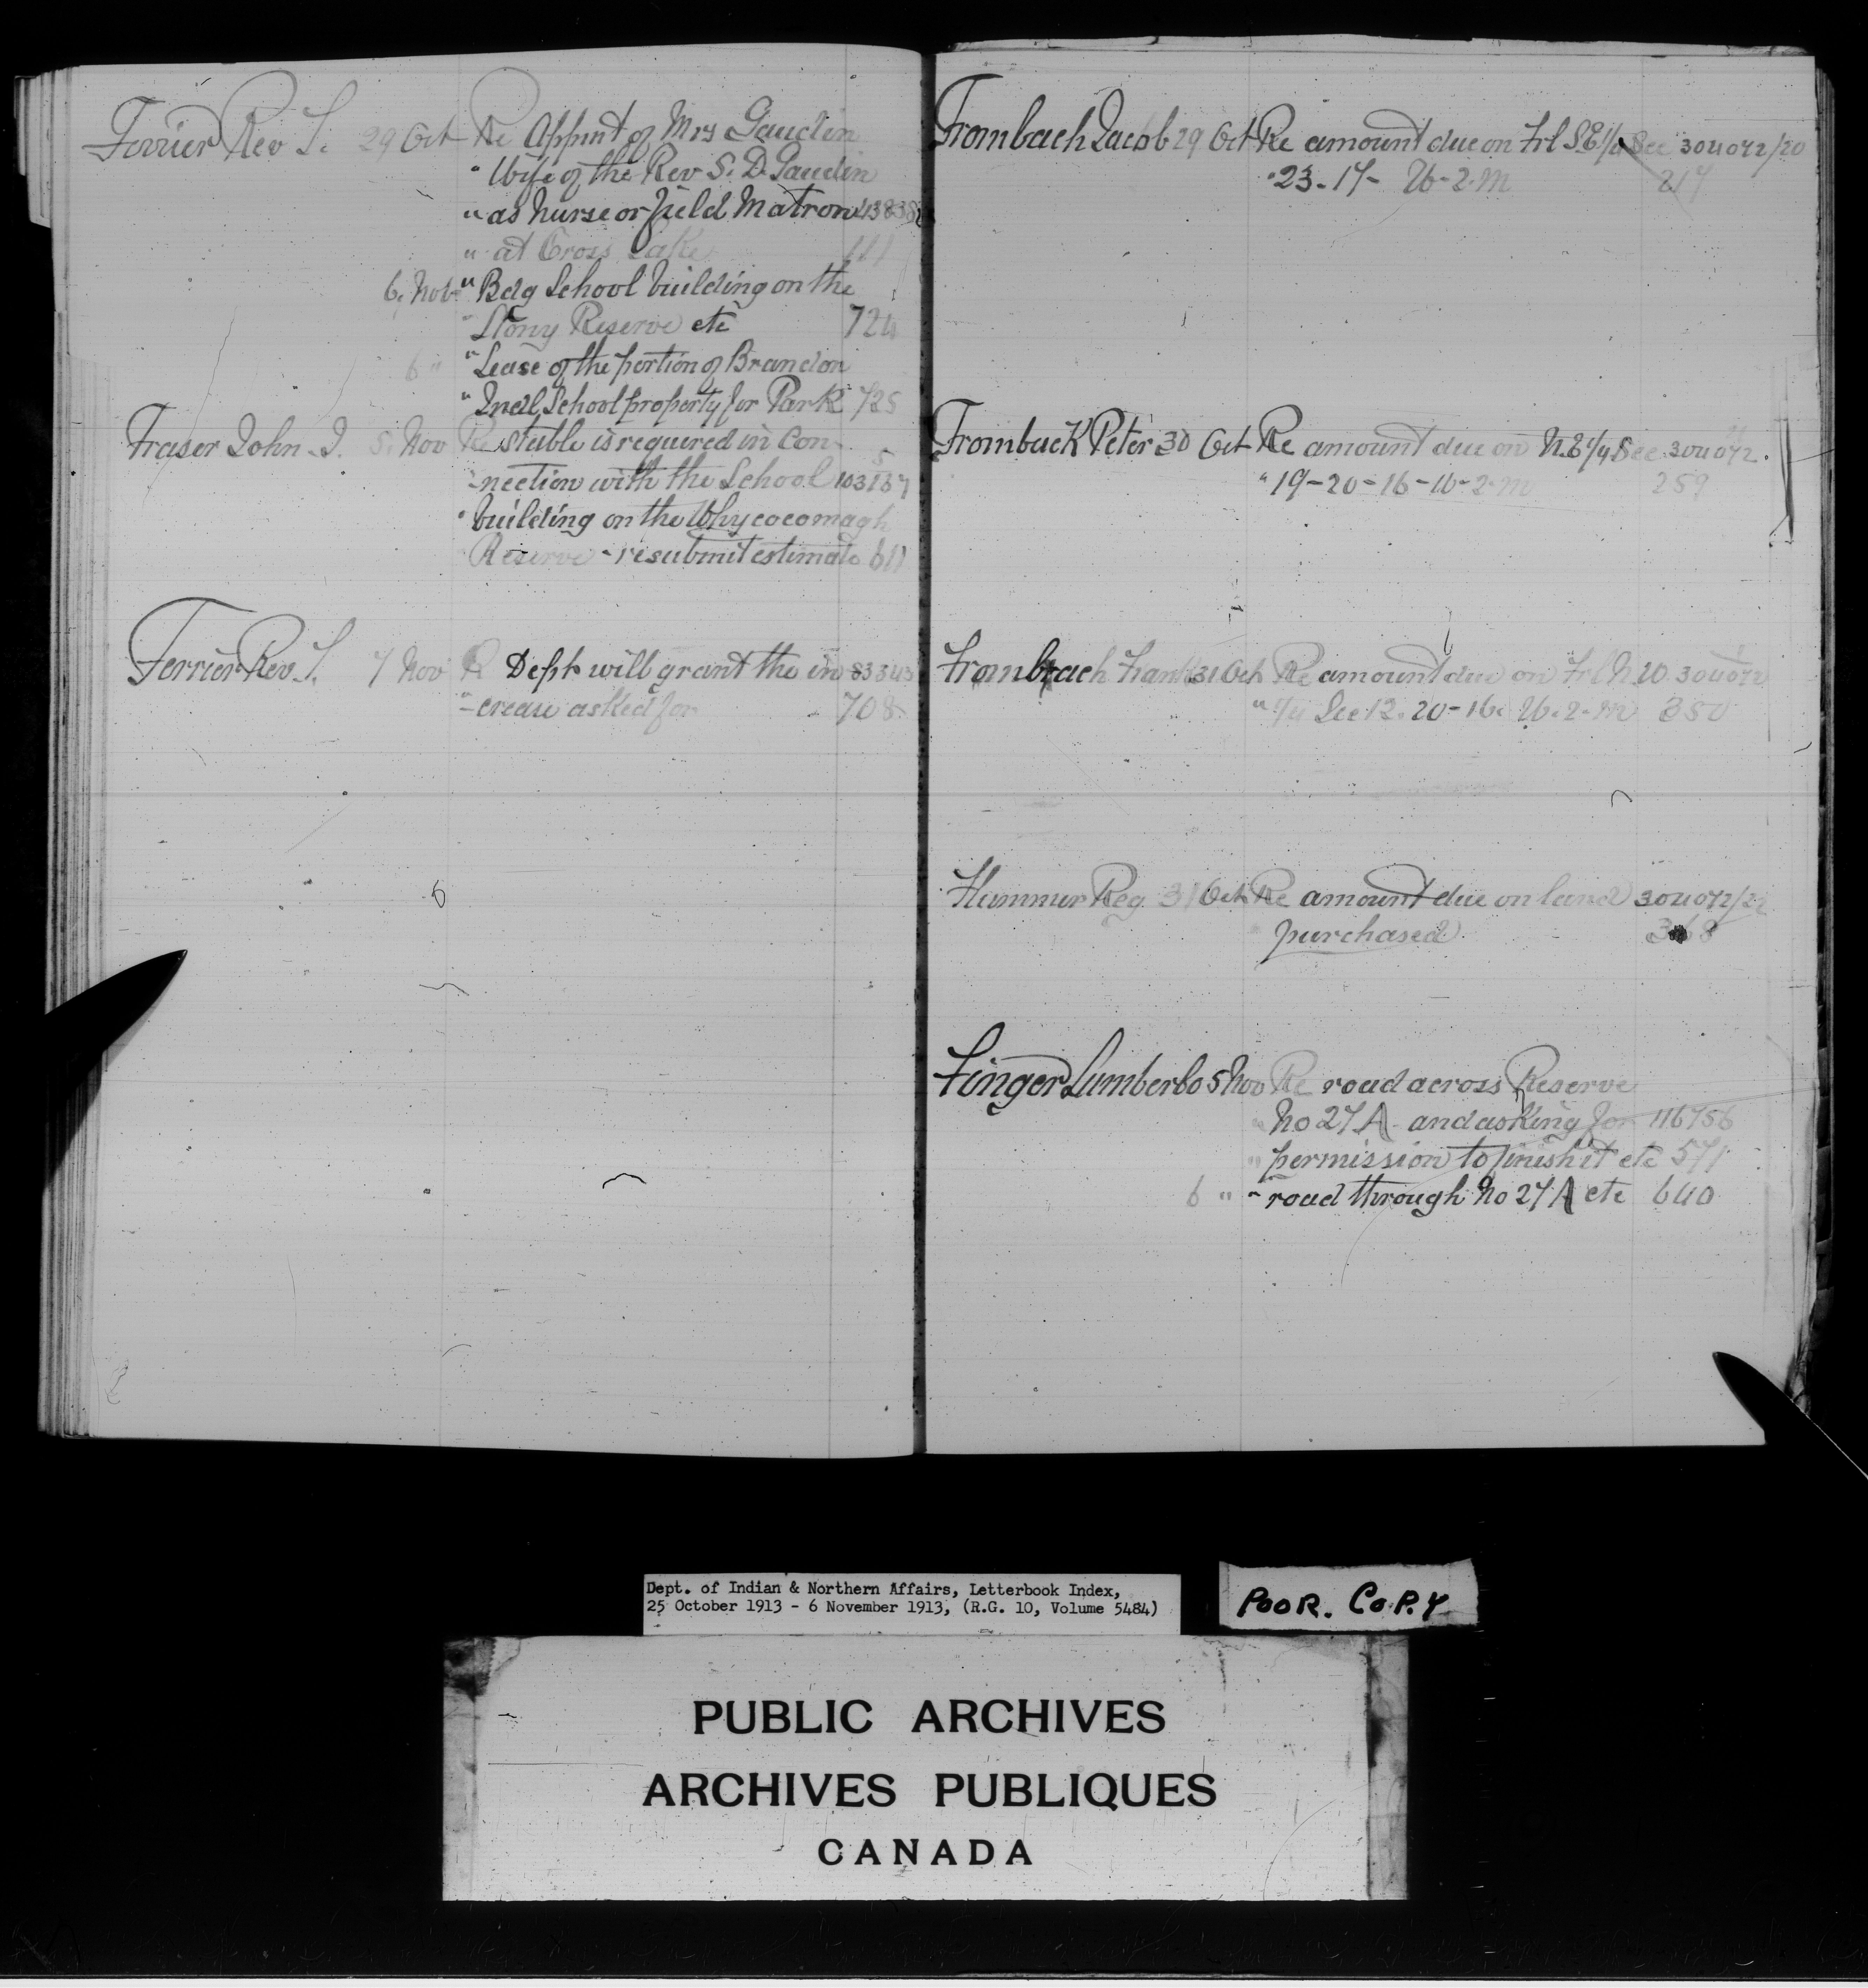 Ferrier Rev T. 29 Oct Re Appmt of Mrs Gaudin
" Wife of the Rev S. D. Gaudin
" as Nurse or field Matron
" at Cross Lake 111
6. Nov " Bdg School building on the
" Stony Reserve etc 724
6 " " Lease of the portion of Brandon
" Indl School property for Park 725
Fraser John J. 5. Nov Re stable is required in con-
-nection with the School
" building on the Whycocomagh
Reserve - resubmit estimate 611
Ferrier Rev. T. 7 Nov R Dept will grant the in
"-crease asked for 708
Frombach Jacob 29 Oct Re amount due on Frl S.E. 1/4 Sec 304072/20
" 23-17- W-2-M 217
Fromback Peter 30 Oct Re amount due on N.E 1/4 Sec 304072
" 19-20-16-W-2-M 259
Frombach Frank 31 Oct Re amount due on Frl N.W. 304072
" 1/4 Sec 12. 20-16. W.2-M 350
Hammer Reg 31 Oct Re amount due on land 304072/22
purchased
Finger Lumber Co 5 Nov Re road across Reserve
" No 27A and asking for 116756
" permission to finish it etc 571
6 " " road through No 27A etc 640
Dept. of Indian & Northern Affairs, Letterbook Index,
25 October 1913 - 6 November 1913, (R.G. 10, Volume 5484)
POOR. COPY
PUBLIC ARCHIVES
ARCHIVES PUBLIQUES
CANADA